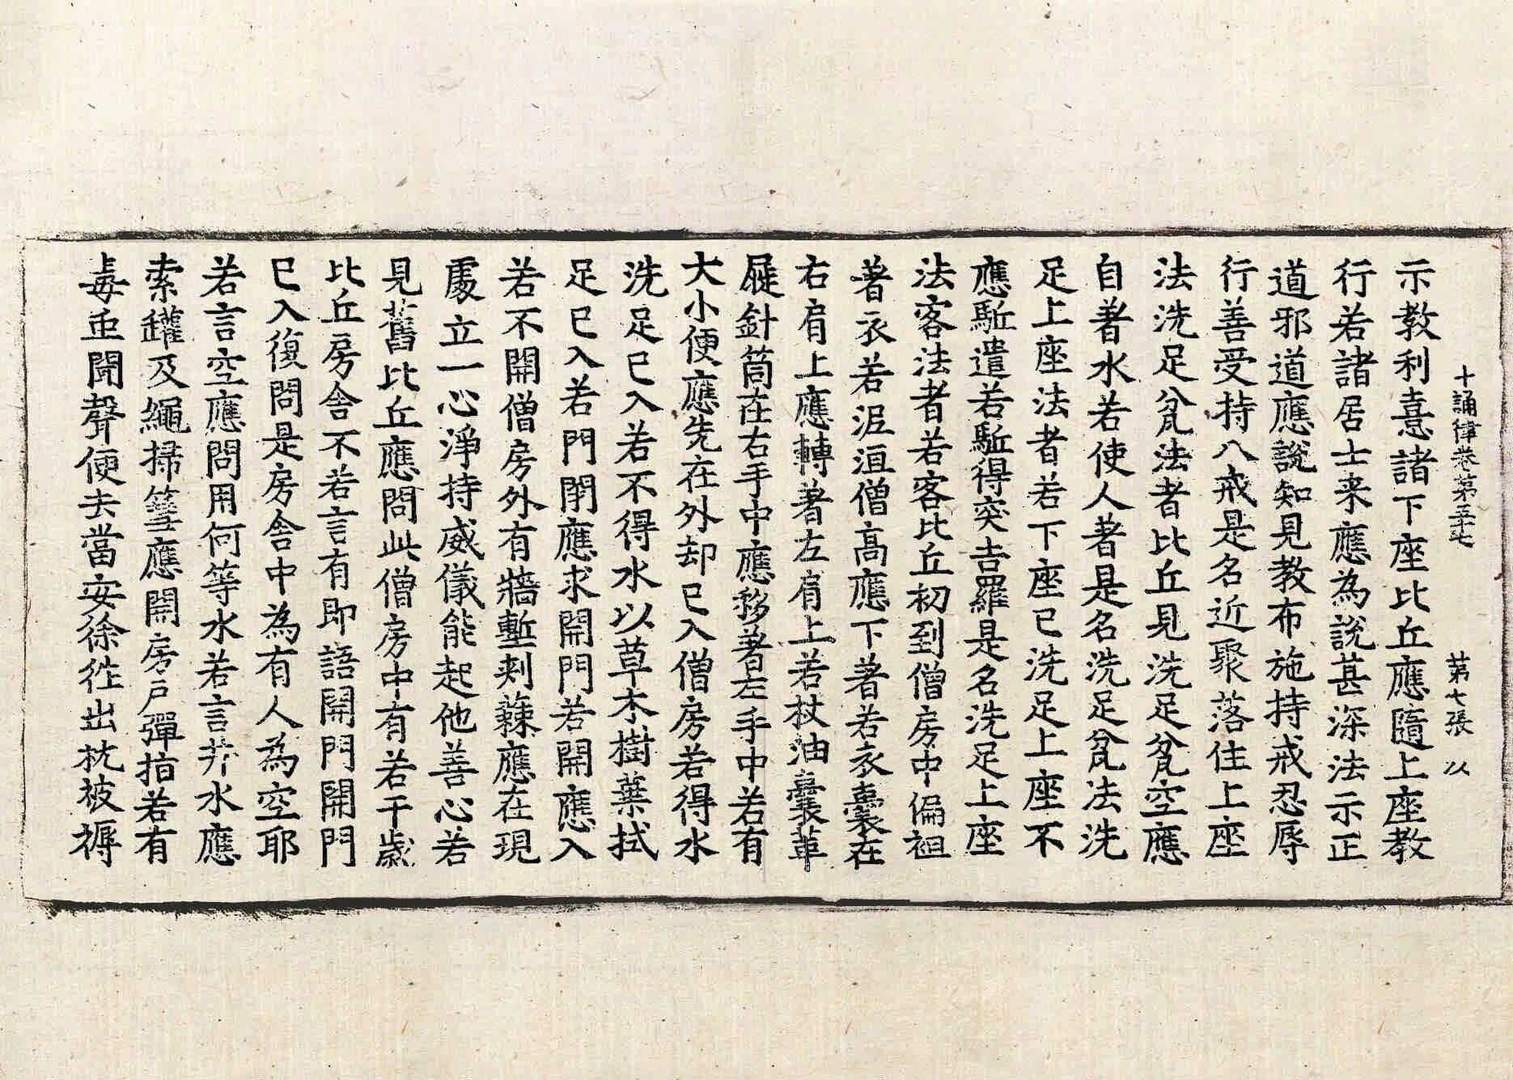 十誦律卷第五十七　第七張　以
示教利憙諸下座比丘應隨上座教
行若諸居士来應為說甚深法示正
道邪道應說知見教布施持戒忍辱
行善受持八戒是名近聚落住上座
法洗足瓫法者比丘見洗足瓫空應
自著水若使人著是名洗足瓫法洗
足上座法者若下座已洗足上座不
應駈遣若駈得突吉羅是名洗足上座
法客法者若客比丘初到僧房中偏袒
著衣若泥洹僧高應下著若衣囊在
右肩上應轉著左肩上若杖油囊革
屣針筒在右手中應移著左手中若有
大小便應先在外却已入僧房若得水
洗足已入若不得水以草木樹葉拭
足已入若門閉應求開門若開應入
若不開僧房外有牆塹刾蕀應在現
處立一心淨持威儀能起他善心若
見舊比丘應問此僧房中有若干歲
比丘房舍不若言有即語開門開門
已入復問是房舍中為有人為空耶
若言空應問用何等水若言井水應
索罐及繩掃篲應開房戶彈指若有
毒虫聞聲便去當安徐徃出枕被褥